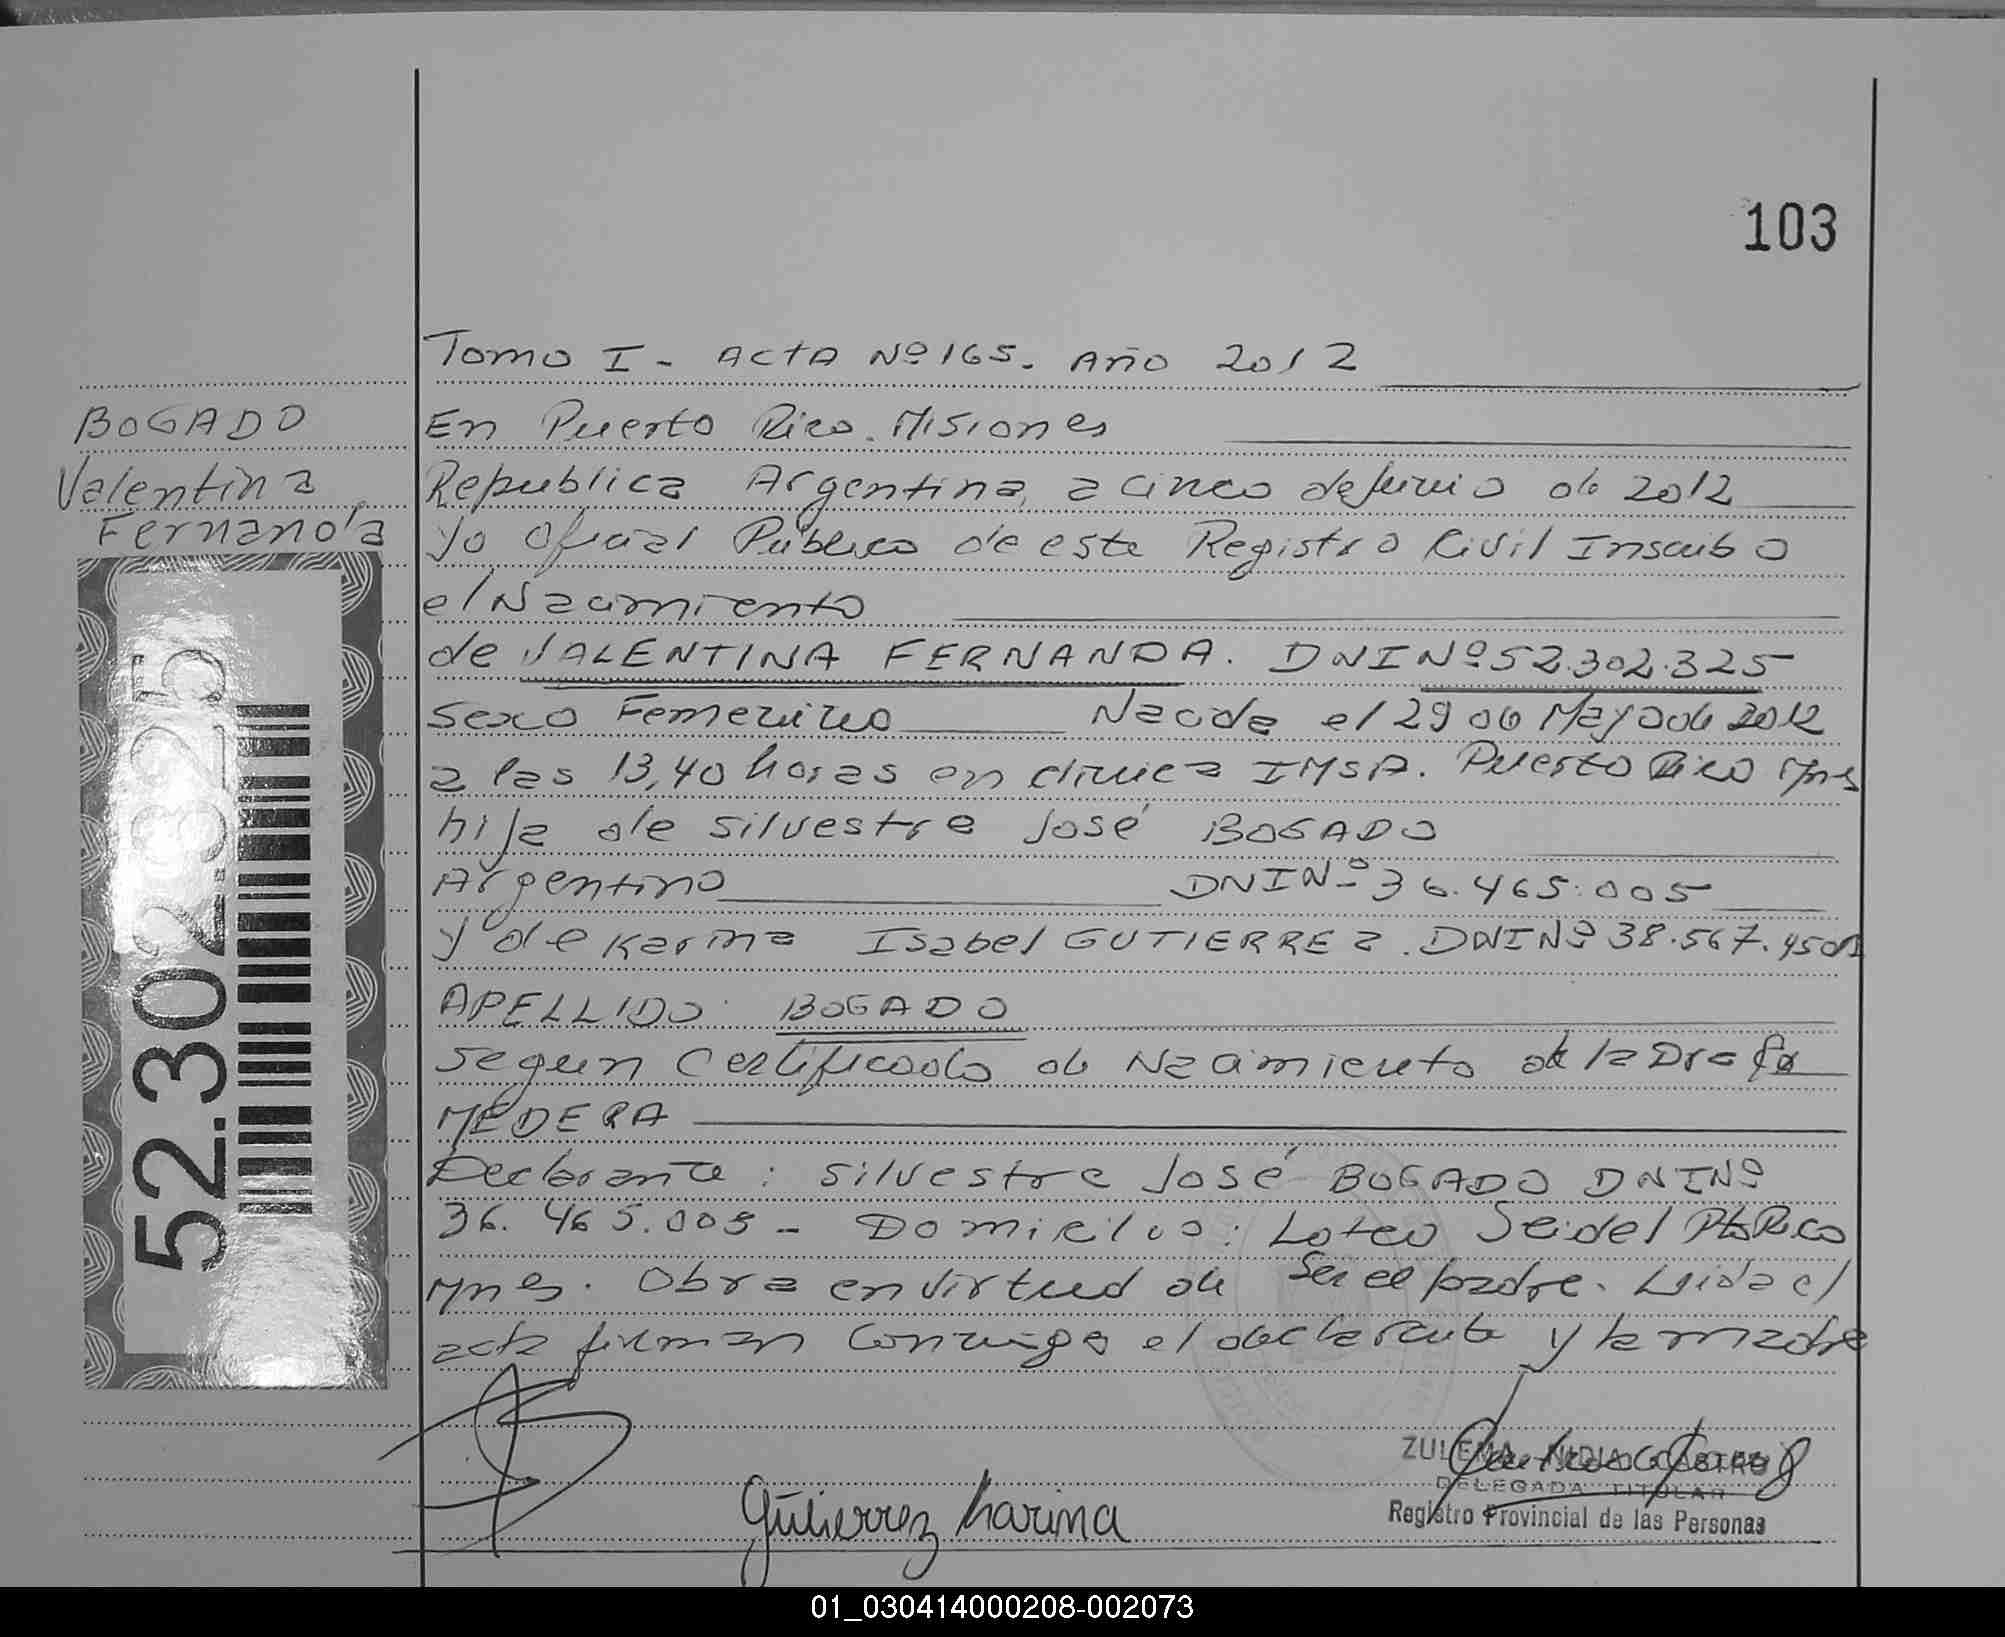 103
Tomo I - ACTA Nº 165. Año 2012
BOGADO
Valentina
Fernanda
52.302.325
En Puerto Rico. Misiones
Republica Argentina, a cinco de Junio de 2012
Yo Oficial Público de este Registro Civil Inscribo
el Nacimiento
de VALENTINA FERNANDA. DNI Nº 52.302.325
sexo Femenino Nacida el 29 de Mayo de 2012
a las 13,40 horas en clinica IMSA. Puerto Rico Mnes
hija de silvestre José BOGADO
Argentino DNI Nº 36.465.005
y de Karina Isabel GUTIERREZ. DNI Nº 38.567.450
APELLIDO: BOGADO
segun Certificado de Nacimiento de la Dra
MEDERA
Declarante: silvestre José BOGADO DNI Nº
36.465.005 - Domicilio: Loteo Seidel Pto Rico
Mnes. Obra en virtud de Ser el padre. Leida el
acta firman conmigo el declarante y la madre
Gutierrez Karina
ZULEMA NIDIA CASTRO
DELEGADA TITULAR
Registro Provincial de las Personas
01_030414000208-002073